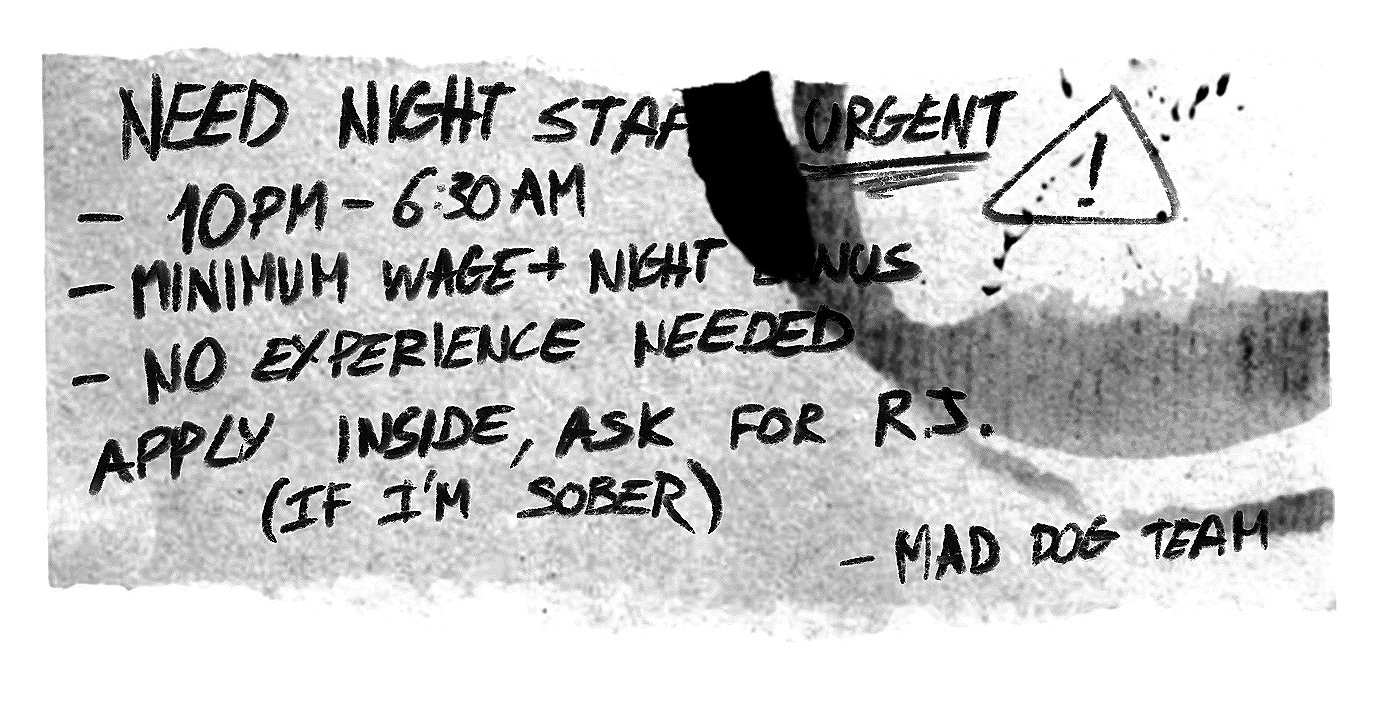 NEED NIGHT STAF URGENT !
- 10PM - 6:30 AM
- MINIMUM WAGE + NIGHT BONUS
- NO EXPERIENCE NEEDED
APPLY INSIDE, ASK FOR R.J.
(IF I'M SOBER)
- MAD DOG TEAM